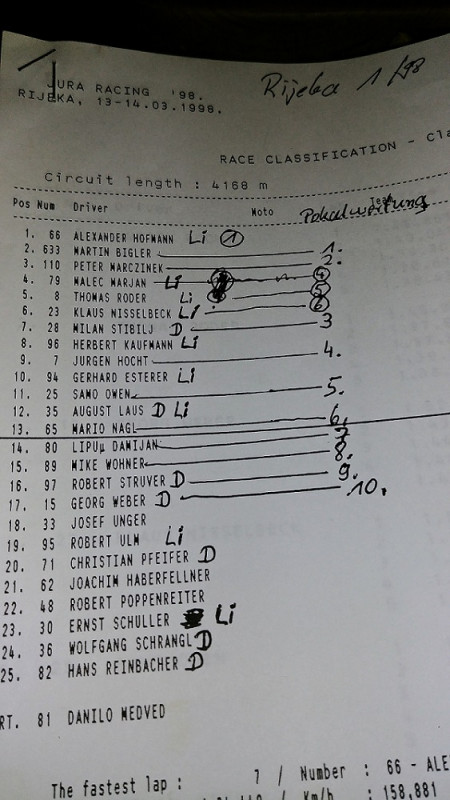 Rijeka 1/98
JURA RACING '98.
RIJEKA, 13-14.03.1998.
RACE CLASSIFICATION - Cla
Circuit length : 4168 m
Pos Num Driver Moto Pokalwertung
1. 66 ALEXANDER HOFMANN Li 1
2. 633 MARTIN BIGLER 1.
3. 110 PETER MARCZINEK 2.
4. 79 MALEC MARJAN Li 4
5. 8 THOMAS RODER Li 5
6. 23 KLAUS NISSELBECK Li 6
7. 28 MILAN STIBILJ D 3
8. 96 HERBERT KAUFMANN Li
9. 7 JURGEN HOCHT 4.
10. 94 GERHARD ESTERER Li
11. 25 SAMO OWEN 5.
12. 35 AUGUST LAUS D Li
13. 65 MARIO NAGL 6.
14. 80 LIPUµ DAMIJAN 7
15. 89 MIKE WOHNER 8.
16. 97 ROBERT STRUVER D 9.
17. 15 GEORG WEBER D 10.
18. 33 JOSEF UNGER
19. 95 ROBERT ULM Li
20. 71 CHRISTIAN PFEIFER D
21. 62 JOACHIM HABERFELLNER
22. 48 ROBERT POPPENREITER
23. 30 ERNST SCHULLER Li
24. 36 WOLFGANG SCHRANGL D
25. 82 HANS REINBACHER D
RT. 81 DANILO MEDVED
The fastest lap : 7 / Number : 66 - ALE
Km/h : 158,881